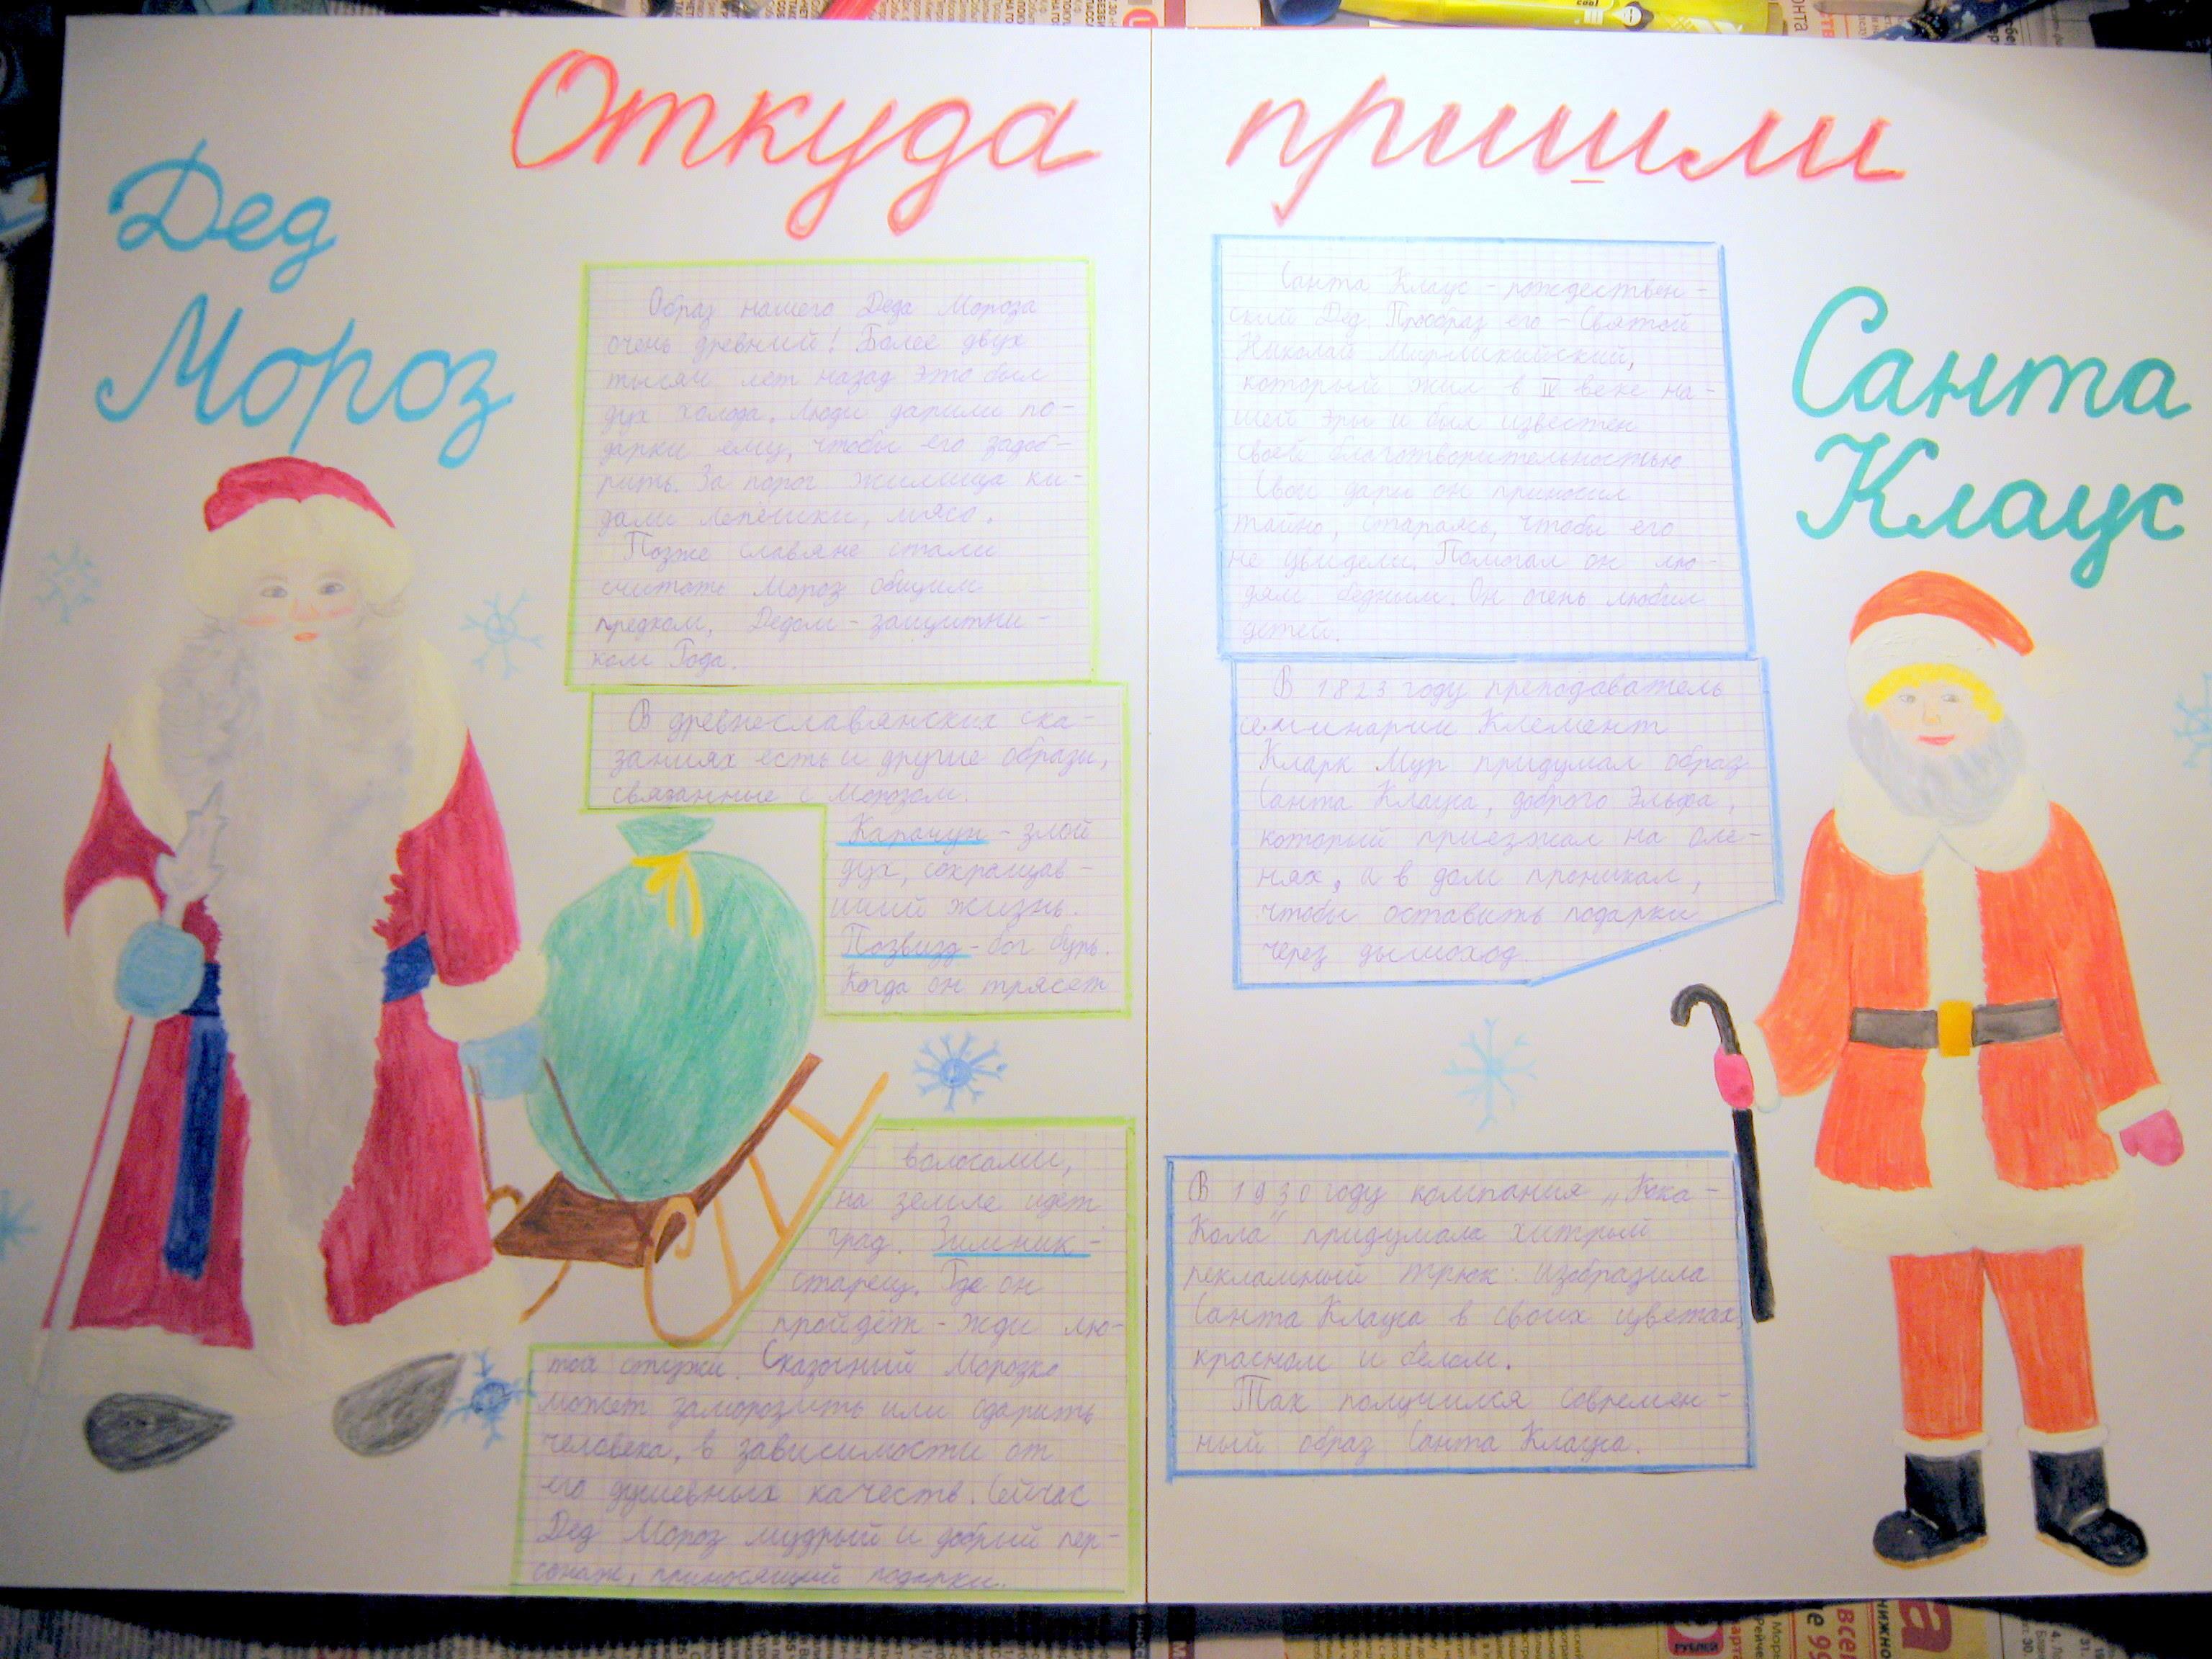 Откуда пришли
Дед
Мороз
Образ нашего Деда Мороза
очень древний! Более двух
тысяч лет назад это был
дух холода. Люди дарили по-
дарки ему, чтобы его задоб-
рить. За порог жилища ки-
дали лепёшки, мясо.
Позже славяне стали
считать Мороз общим
предком, Дедом - защитни-
ком Рода.
В древнеславянских ска-
заниях есть и другие образы,
связанные с Морозом.
Карачун - злой
дух, сокращав-
ший жизнь.
Позвизд - бог бурь.
Когда он трясёт
волосами,
на земле идёт
град. Зимник -
старец. Где он
пройдёт - жди лю-
той стужи. Сказочный Морозко
может заморозить или одарить
человека, в зависимости от
его душевных качеств. Сейчас
Дед Мороз мудрый и добрый пер-
сонаж, приносящий подарки.
Санта
Клаус
Санта Клаус - рождествен-
ский Дед. Прообраз его - Святой
Николай Мирликийский,
который жил в IV веке на-
шей эры и был известен
своей благотворительностью
Свои дары он приносил
тайно, стараясь, чтобы его
не увидели. Помогал он лю-
дям бедным. Он очень любил
детей.
В 1823 году преподаватель
семинарии Клемент
Кларк Мур придумал образ
Санта Клауса, доброго Эльфа,
который приезжал на оле-
нях, а в дом проникал,
чтобы оставить подарки
через дымоход.
В 1930 году компания „Кока-
Кола" придумала хитрый
рекламный трюк: изобразила
Санта Клауса в своих цветах,
красном и белом.
Так получился современ-
ный образ Санта Клауса.